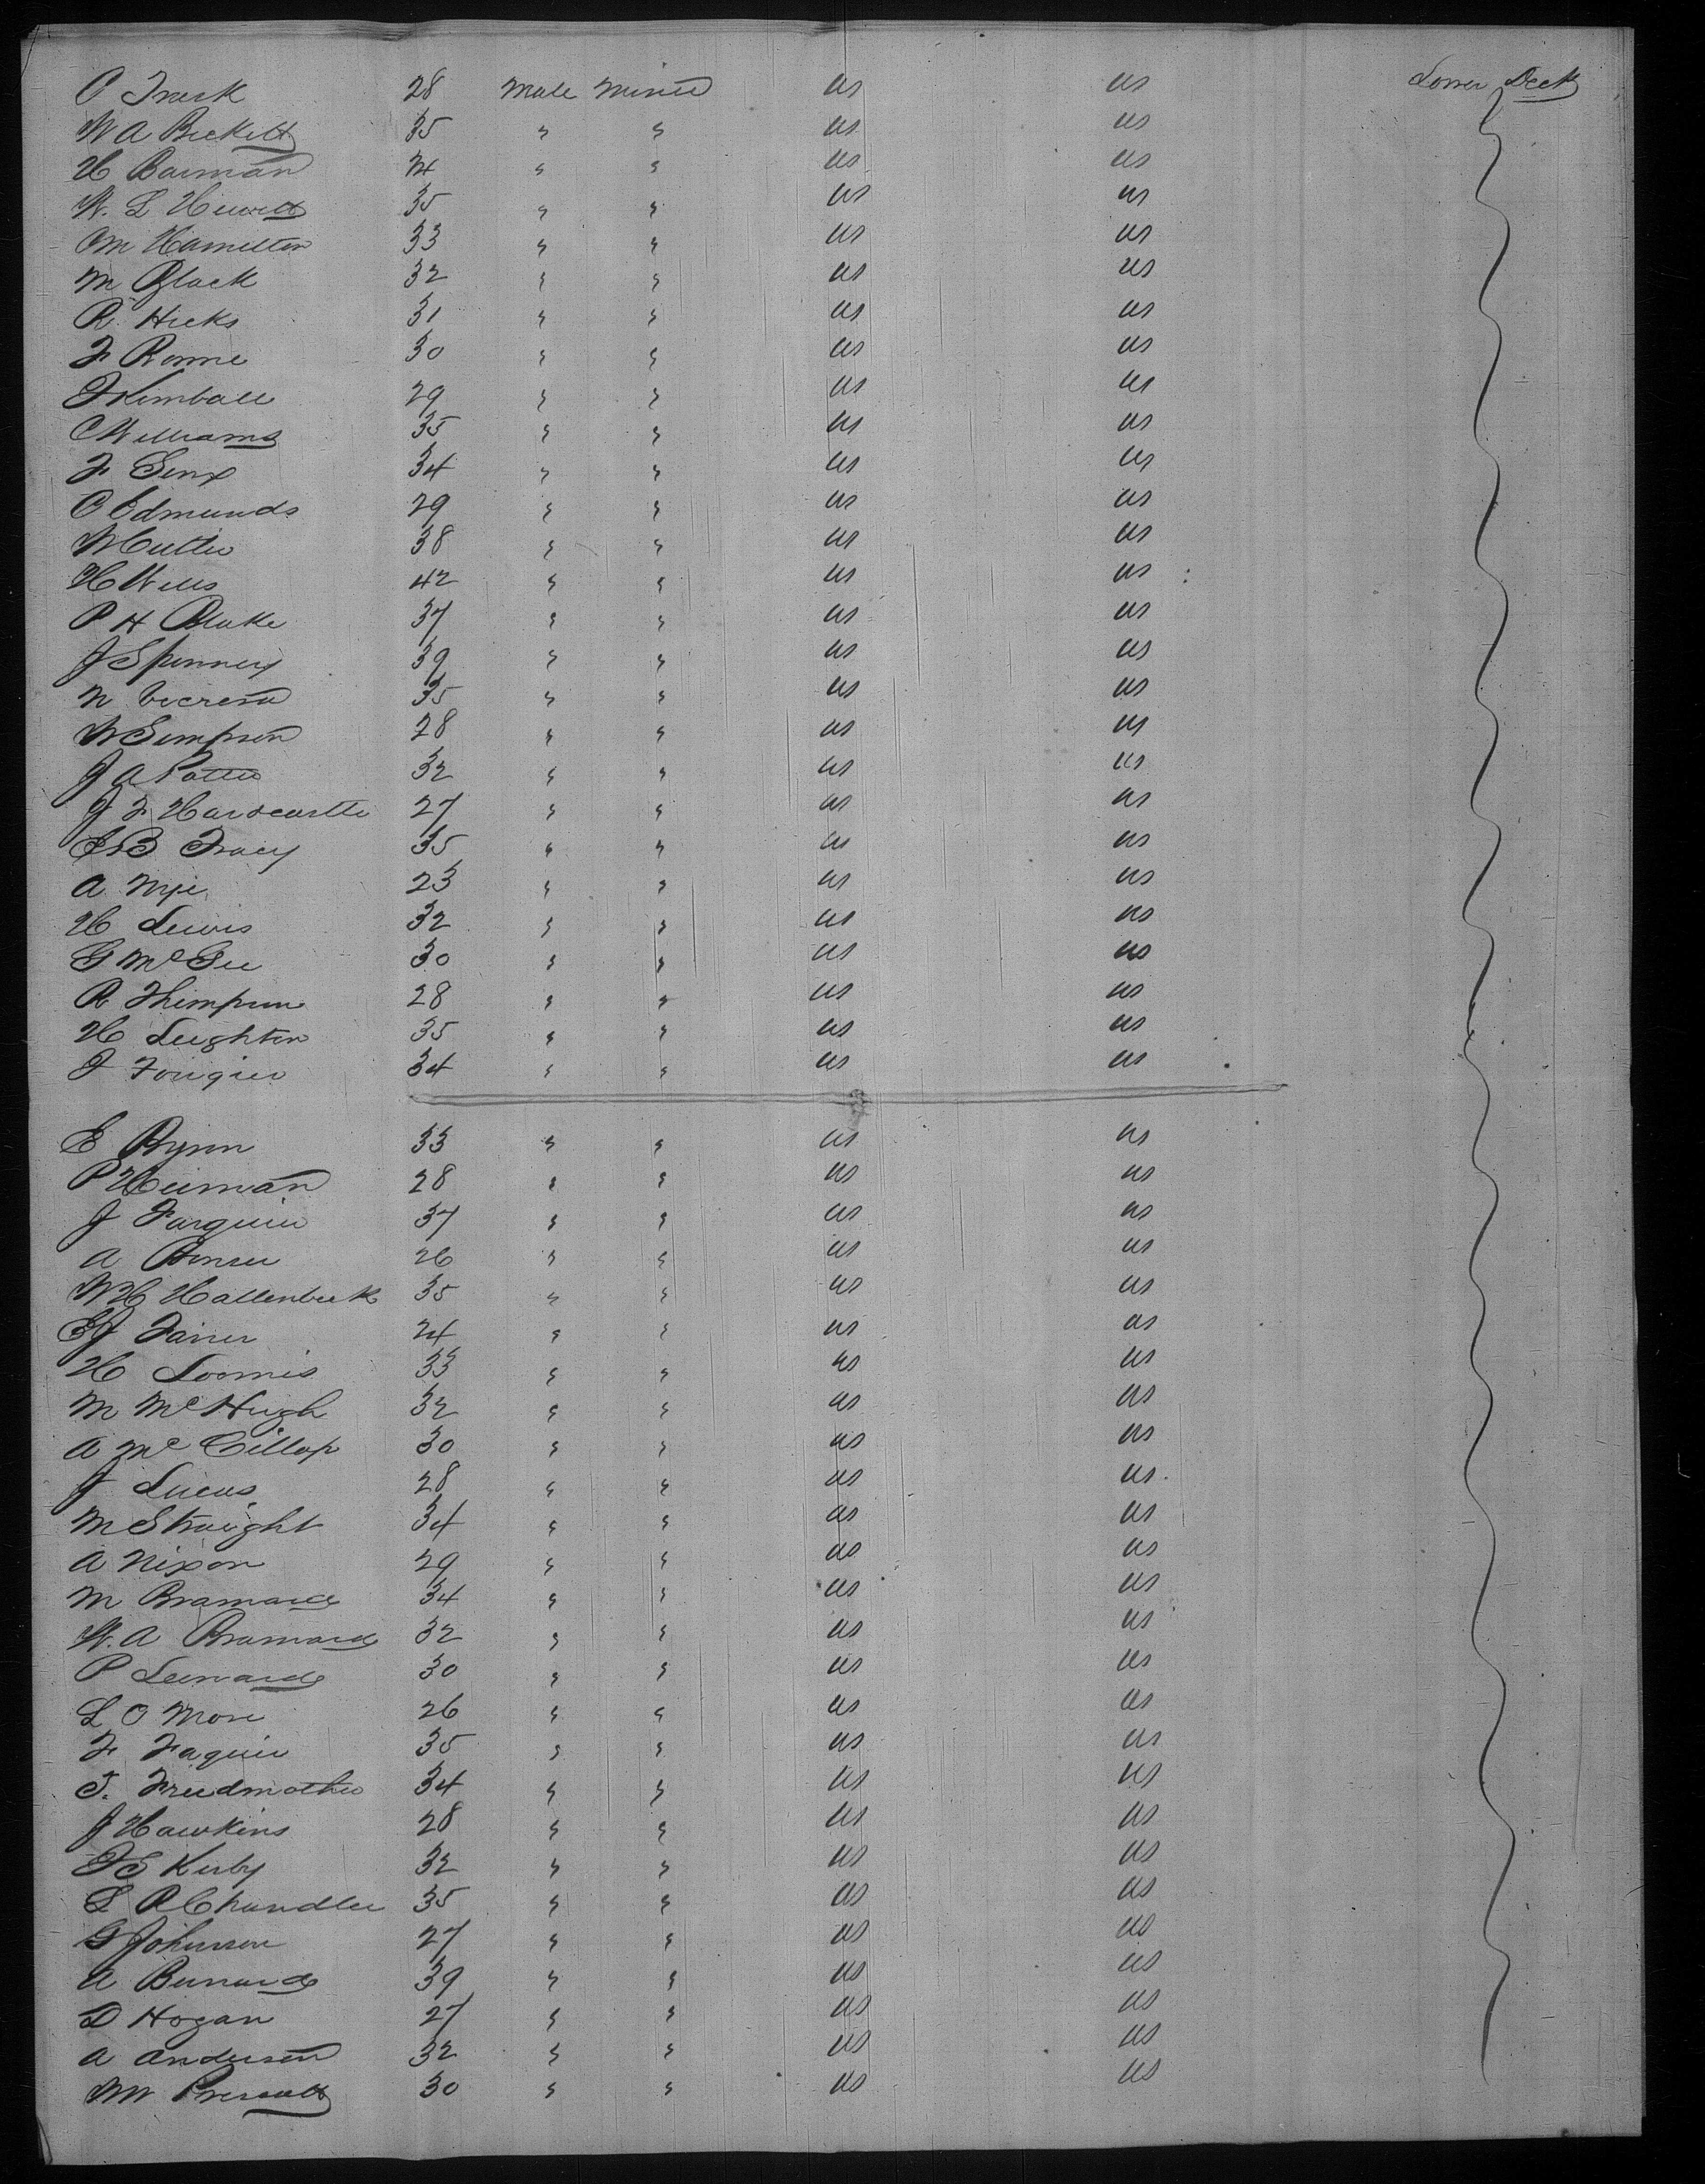 28 Male Miner US US Lower Deck
W A Beckett 35 " " US US
H Bauman " " US US
W. L Hewett 35 " " US US
Hamilton 33 " " US US
M Black 32 " " US US
R. Hicks 31 " " US US
F Rome 30 " " US US
Kimball 29 " " US US
C Williams 35 " " US US
F 34 " " US US
Edmunds 29 " " US US
38 " " US US
H Wells 42 " " US US
P H Blake 37 " " US US
J Spinney 39 " " US US
N 35 " " US US
W Simpson 28 " " US US
J A Potter 32 " " US US
J F Hardcastle 27 " " US US
Tracy 35 " " US US
A Nye 23 " " US US
H Lewis 32 " " US US
G McGee 30 " " US US
R Thompson 28 " " US US
H Leighton 35 " " US US
34 " " US US
E 33 " " US US
P Heiman 28 " " US US
J Farquier 37 " " US US
A 26 " " US US
W H Hallenbeck 35 " " US US
24 " " US US
H Loomis 33 " " US US
M McHugh 32 " " US US
A Mc 30 " " US US
J Lucas 28 " " US US
M Straight 34 " " US US
A Nixon 29 " " US US
M 34 " " US US
W. A 32 " " US US
P Leonard 30 " " US US
L O More 26 " " US US
F Faquier 35 " " US US
34 " " US US
J Hawkins 28 " " US US
Kirby 32 " " US US
L R Chandler 35 " " US US
G Johnson 27 " " US US
A 39 " " US US
D Hogan 27 " " US US
A Anderson 32 " " US US
30 " " US US